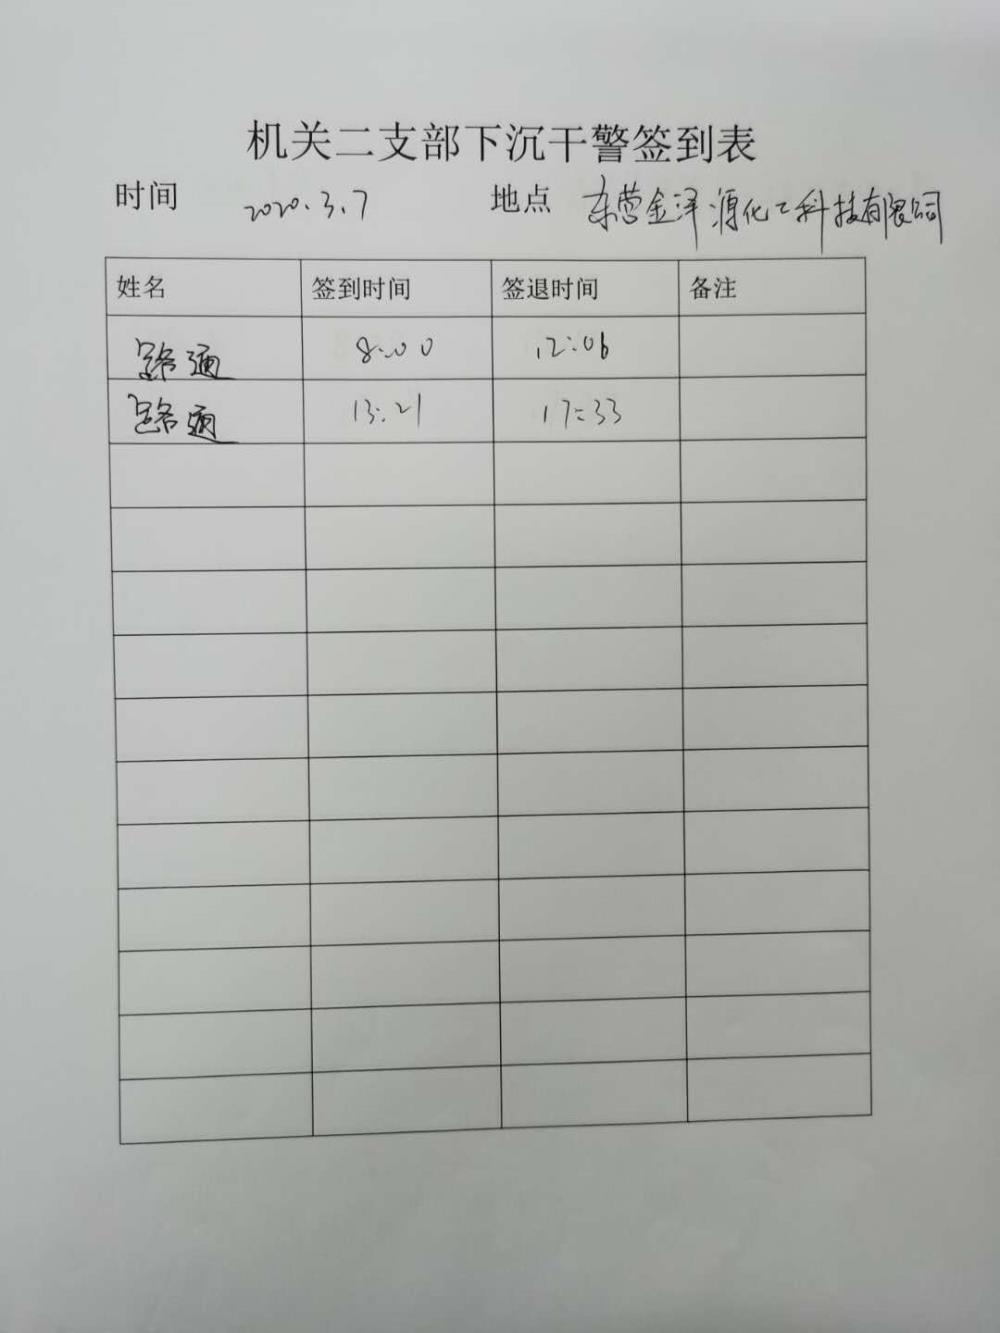 机关二支部下沉干警签到表
时间 2020.3.7 地点 东营金泽源化工科技有限公司
姓名 签到时间 签退时间 备注
路通 8:00 12:06
路通 13:21 17:33